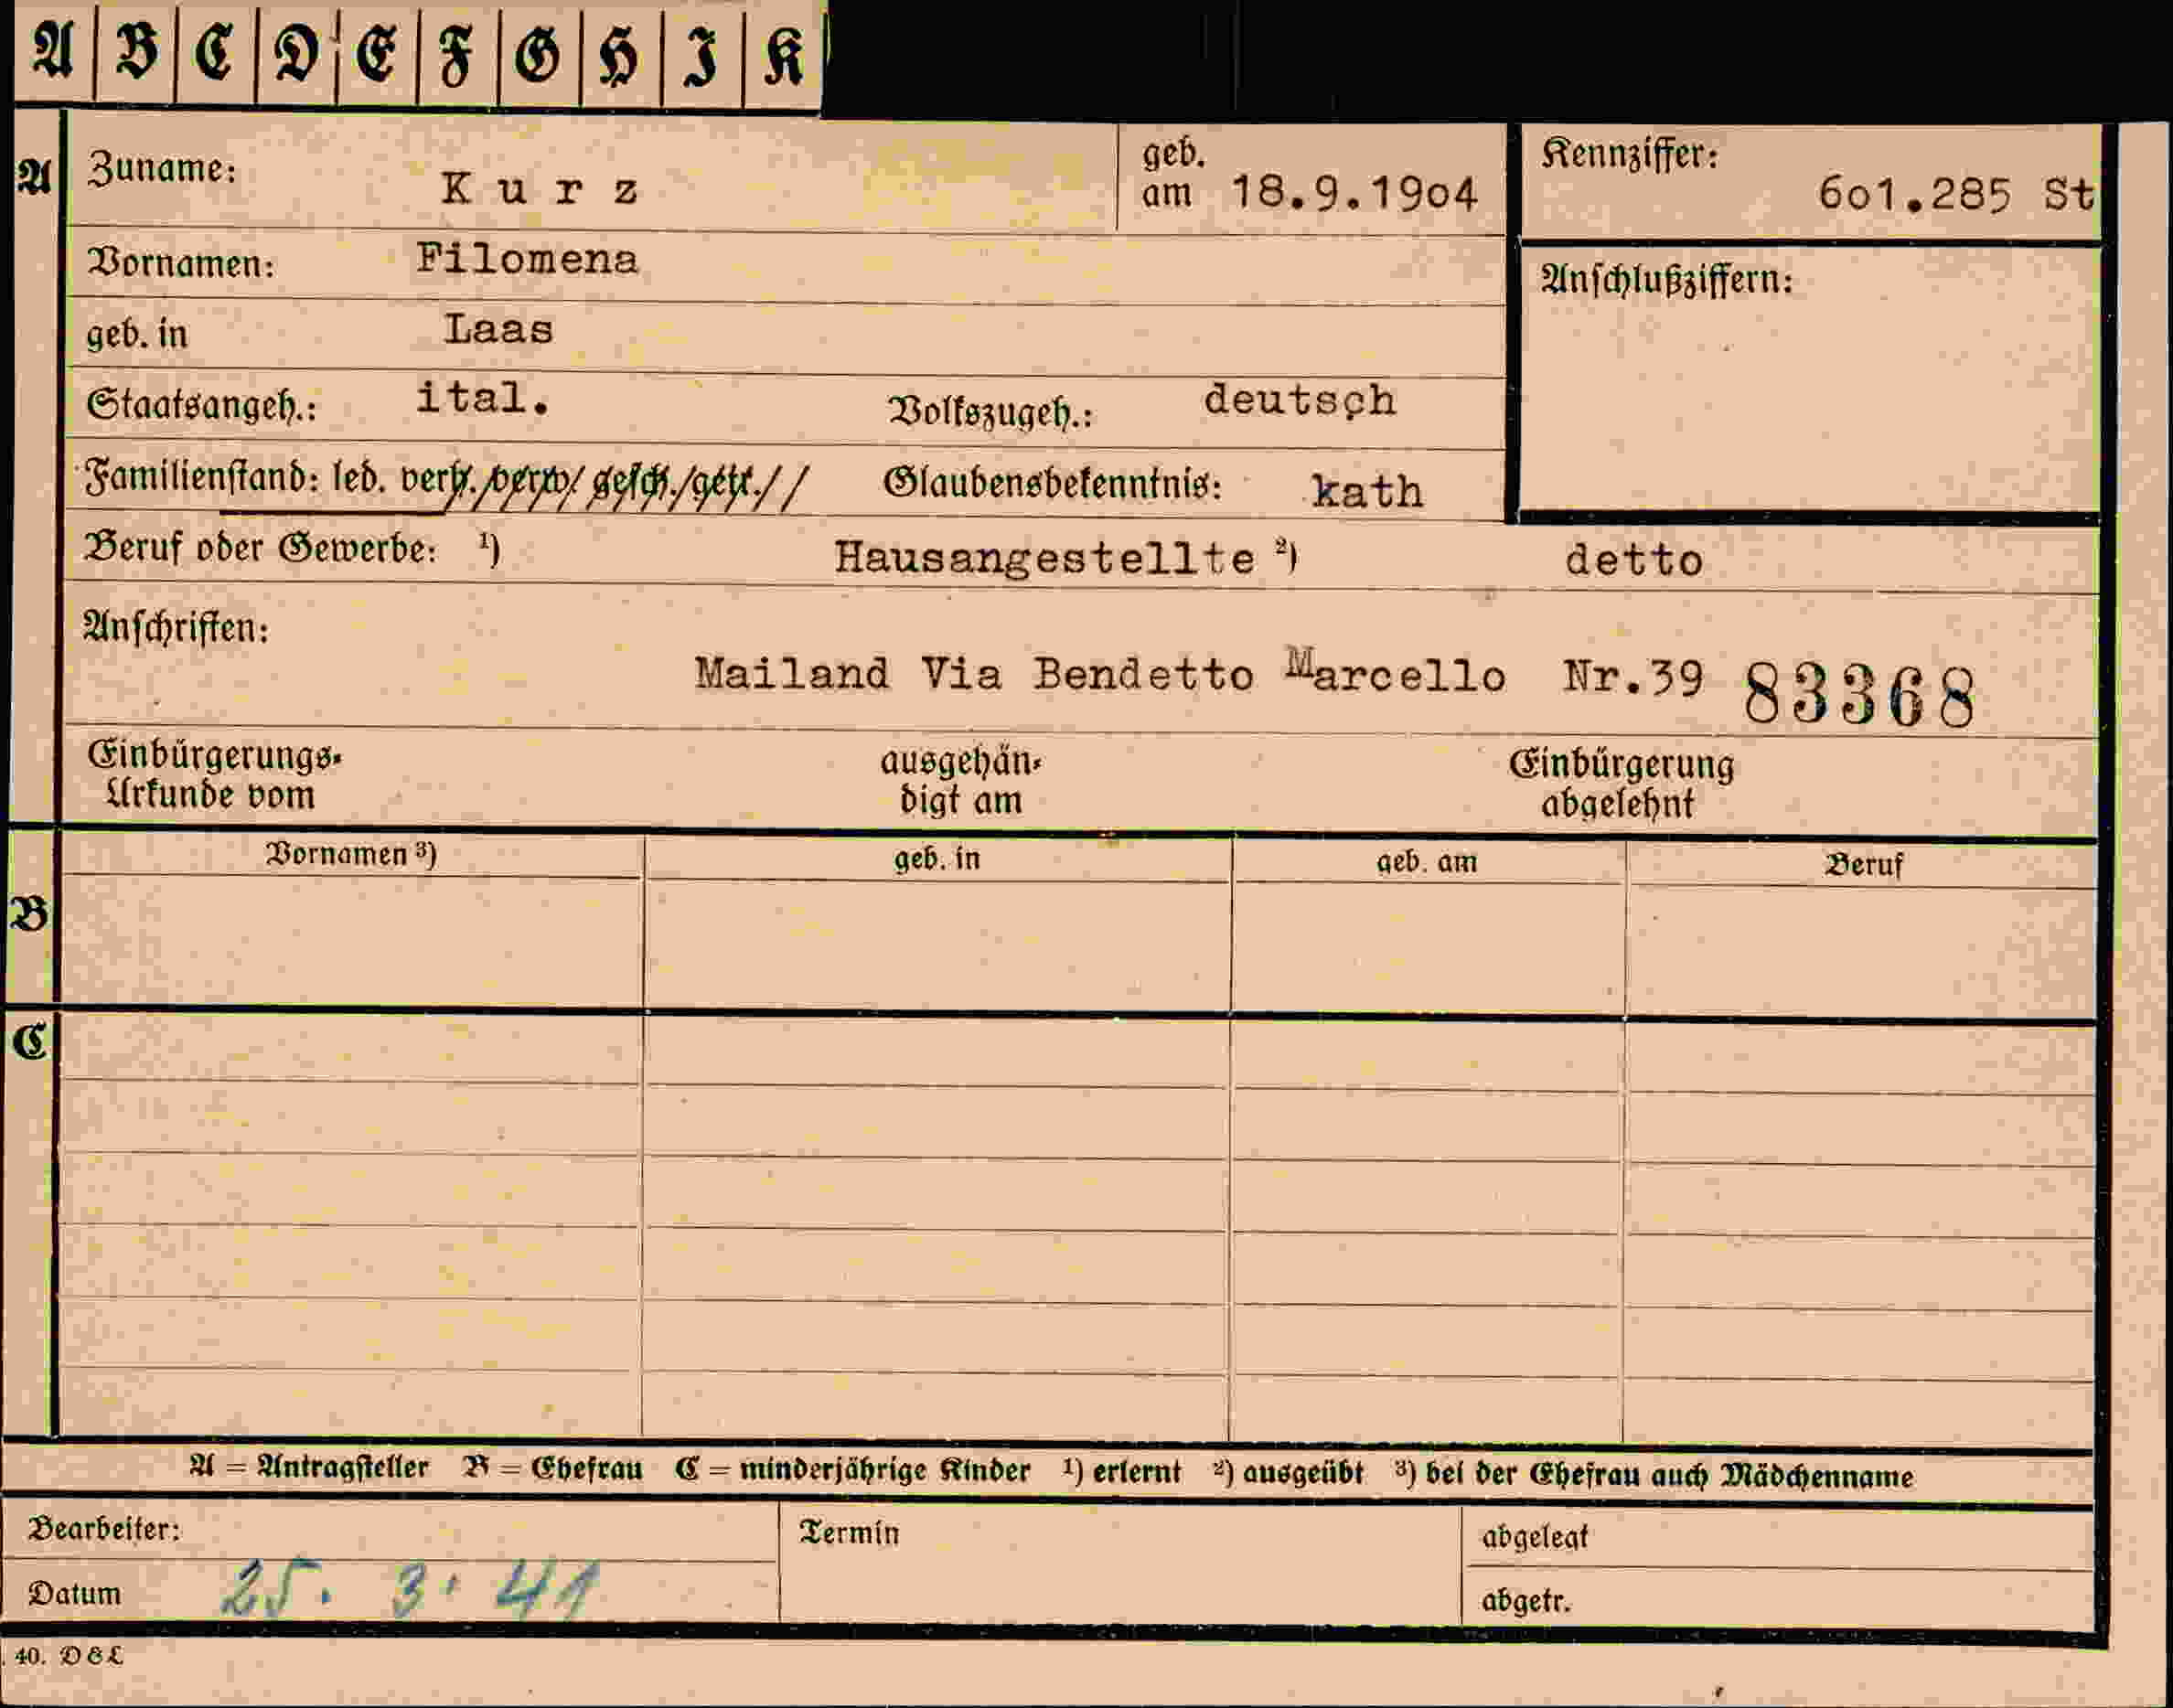 A B C D E F G H I K
A Zuname: Kurz geb. am 18.9.1904 Kennziffer: 601.285 St
Vornamen: Filomena Anschlußziffern:
geb. in Laas
Staatsangeh.: ital. Volkszugeh.: deutsch
Familienstand: led. verh./verw/gesch./getr.// Glaubensbekenntnis: kath
Beruf oder Gewerbe: ¹) Hausangestellte ²) detto
Anschriften:
Mailand Via Bendetto Marcello Nr.39 83368
Einbürgerungs- ausgehän- Einbürgerung
Urkunde vom digt am abgelehnt
Vornamen ³) geb. in geb. am Beruf
B
C
A = Antragsteller B = Ehefrau C = minderjährige Kinder ¹) erlernt ²) ausgeübt ³) bei der Ehefrau auch Mädchenname
Bearbeiter: Termin abgelegt
Datum 25. 3. 41 abgetr.
40. D&L